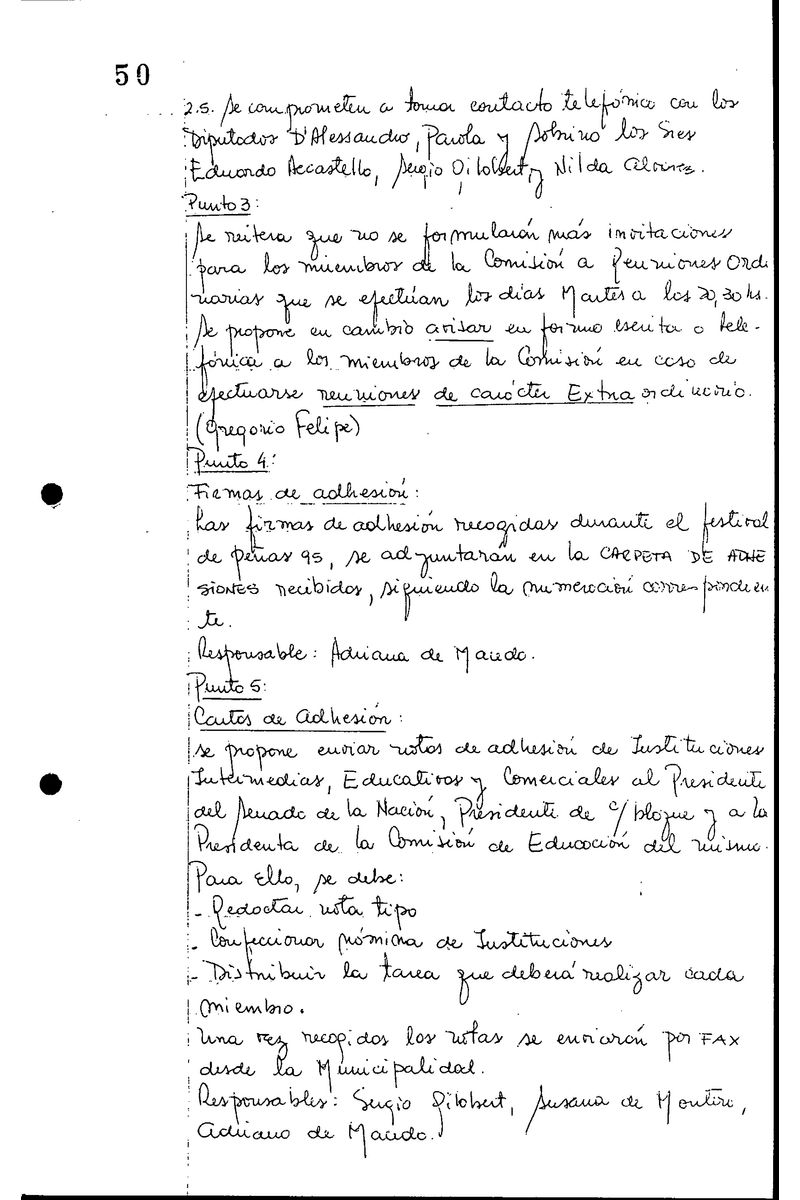 50
2.5. Se comprometen a tomar contacto telefónico con los
Diputados D'Alessandro, Parola y Sobrino los Sres
Eduardo Accastello, Sergio Gilobert, y Nilda Alvarez.
Punto 3:
Se reitera que no se formularán más invitaciones
para los miembros de la Comisión a Reuniones Ordi
narias que se efectúan los días Martes a las 20,30 hs.
Se propone en cambio avisar en forma escrita o tele-
fónica a los miembros de la Comisión en caso de
efectuarse reuniones de carácter Extraordinario.
(Gregorio Felipe)
Punto 4:
Firmas de adhesión:
Las firmas de adhesión recogidas durante el festival
de peñas 95, se adjuntarán en la CARPETA DE ADHE
SIONES recibidas, siguiendo la numeración correspondien
te.
Responsable: Adriana de Macedo.
Punto 5:
Cartas de Adhesión:
se propone enviar notas de adhesión de Instituciones
Intermedias, Educativas y Comerciales al Presidente
del Senado de la Nación, Presidente de c/ bloque y a la
Presidenta de la Comisión de Educación del mismo.
Para Ello, se debe:
- Redactar nota tipo
- Confeccionar nómina de Instituciones
- Distribuir la tarea que deberá realizar cada
miembro.
Una vez recogidas las notas se enviarán por FAX
desde la Municipalidad.
Responsables: Sergio Gilobert, Susana de Montiro,
Adriana de Macedo.